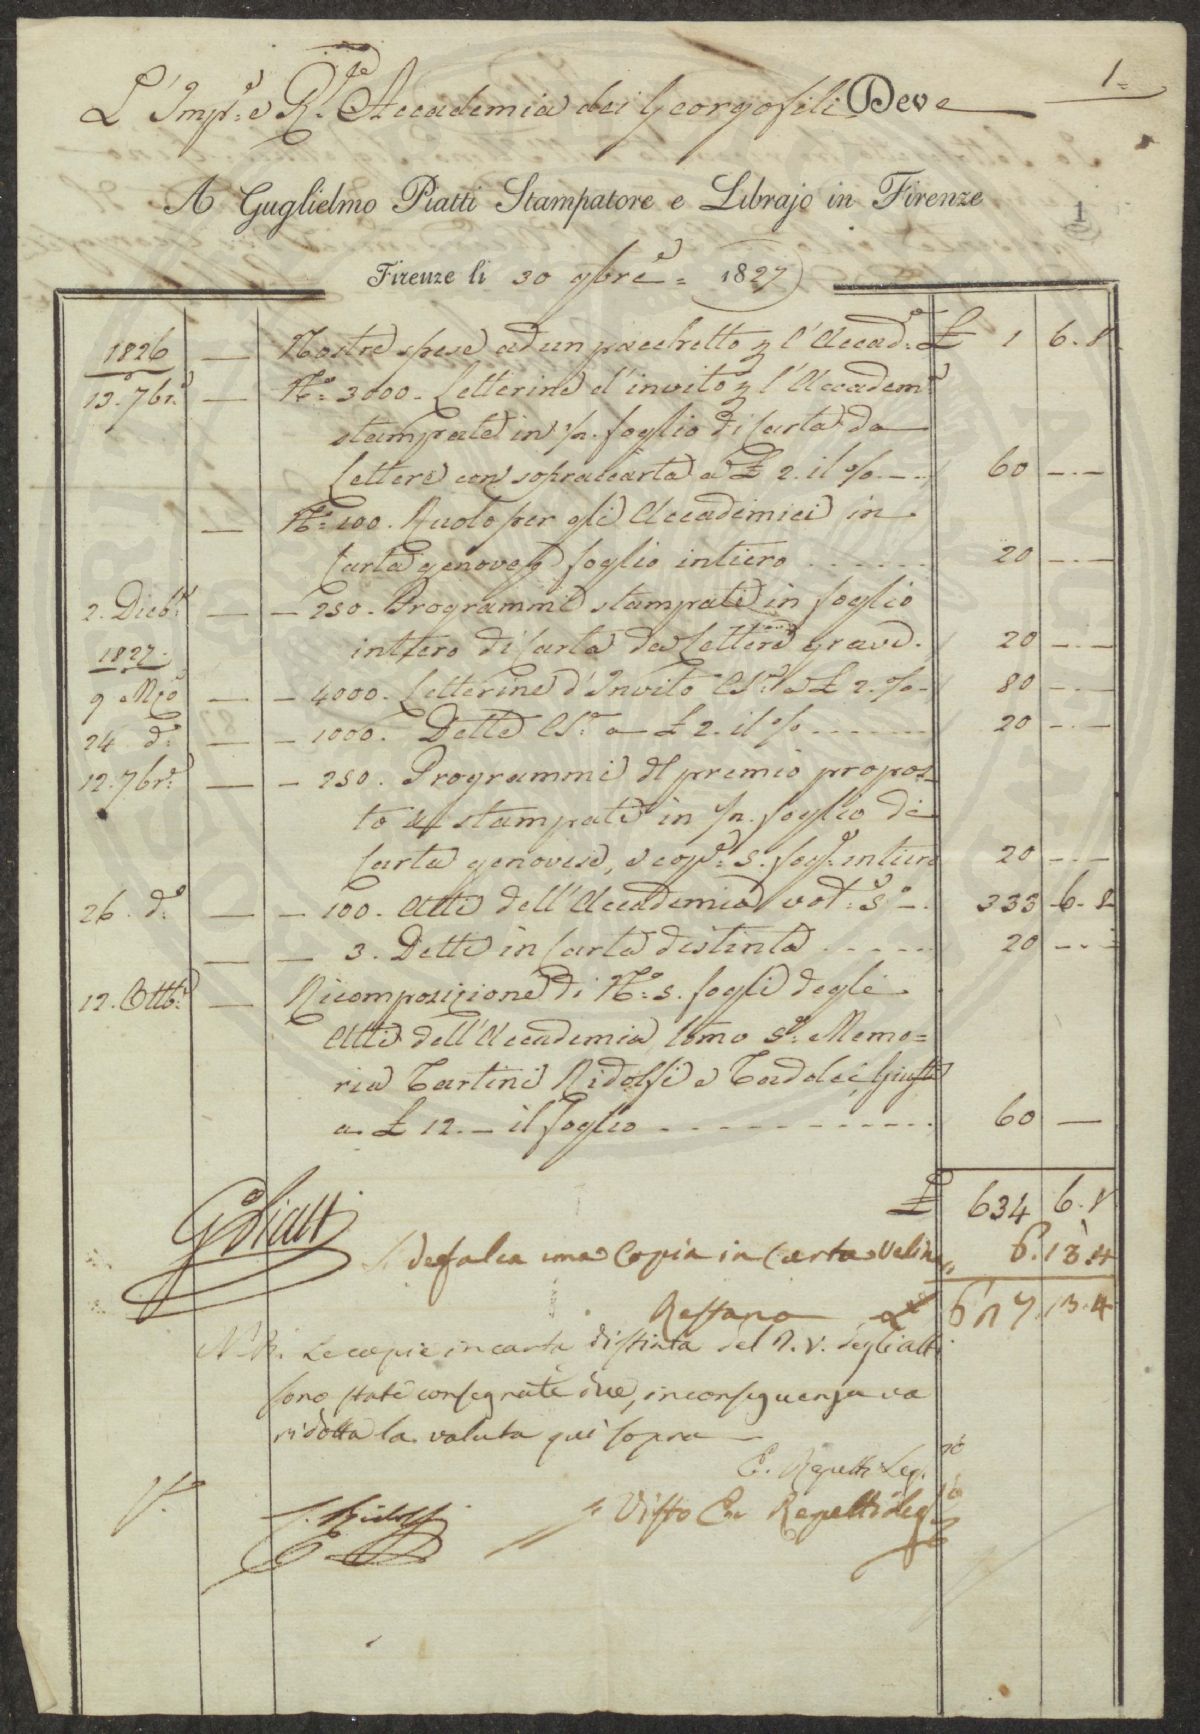 1.
L'Imp.e e R.le Accademia dei Georgofili Deve
A Guglielmo Piatti Stampatore e Librajo in Firenze
1
Firenze li 30 9bre = 1827
1826 — Nostre spese ad un pacchetto p l'Accad.a £ 1 6.8
13. 7br.e — N.o 3000. Letterine d'invito p l'Accadem.a
stampate in 1/2 foglio di Carta da
Lettere con sopracarta a £ 2. il % 60 -.-
— N.o 100. Ruolo per gli Accademici in
Carta genovese foglio intiero 20 -.-
2. Dicb.e — 250. Programmi stampati in foglio
1827 intiero di Carta da Lettere grave. 20 -.-
9 Mgo — 4000. Letterine d'Invito C.S.a a £ 2. % 80 -.-
24. d.o — 1000. Dette C.S.a a £ 2. il % 20 -.-
12. 7br.e — 250. Programmi del premio propos-
to stampati in 1/2 foglio di
Carta genovese, e cop.e s. fog.o intiero 20 -.-
26. d.o — 100. Atti dell'Accademia vol.e 5.o 333 6.8
— 3. Detti in Carta distinta 20 -.-
12. Ottb.e — Ricomposizione di N.o 5. fogli degli
Atti dell'Accademia tomo 5.o Memo=
ria Tartini Ridolfi e Taddei, Giusti
a £ 12. — il foglio 60 —
£ 634 6.8
GPiatti
Si defalca una Copia in Carta Velina 6.13.4
Restano £ 627.13.4
N.B. Le copie in carta distinta del T. V. degli atti
sono state consegnate due, in conseguenza va
ridotta la valuta qui sopra
E. Repetti Seg.rio
V.
C. Ridolfi
Visto E. Repetti Seg.rio